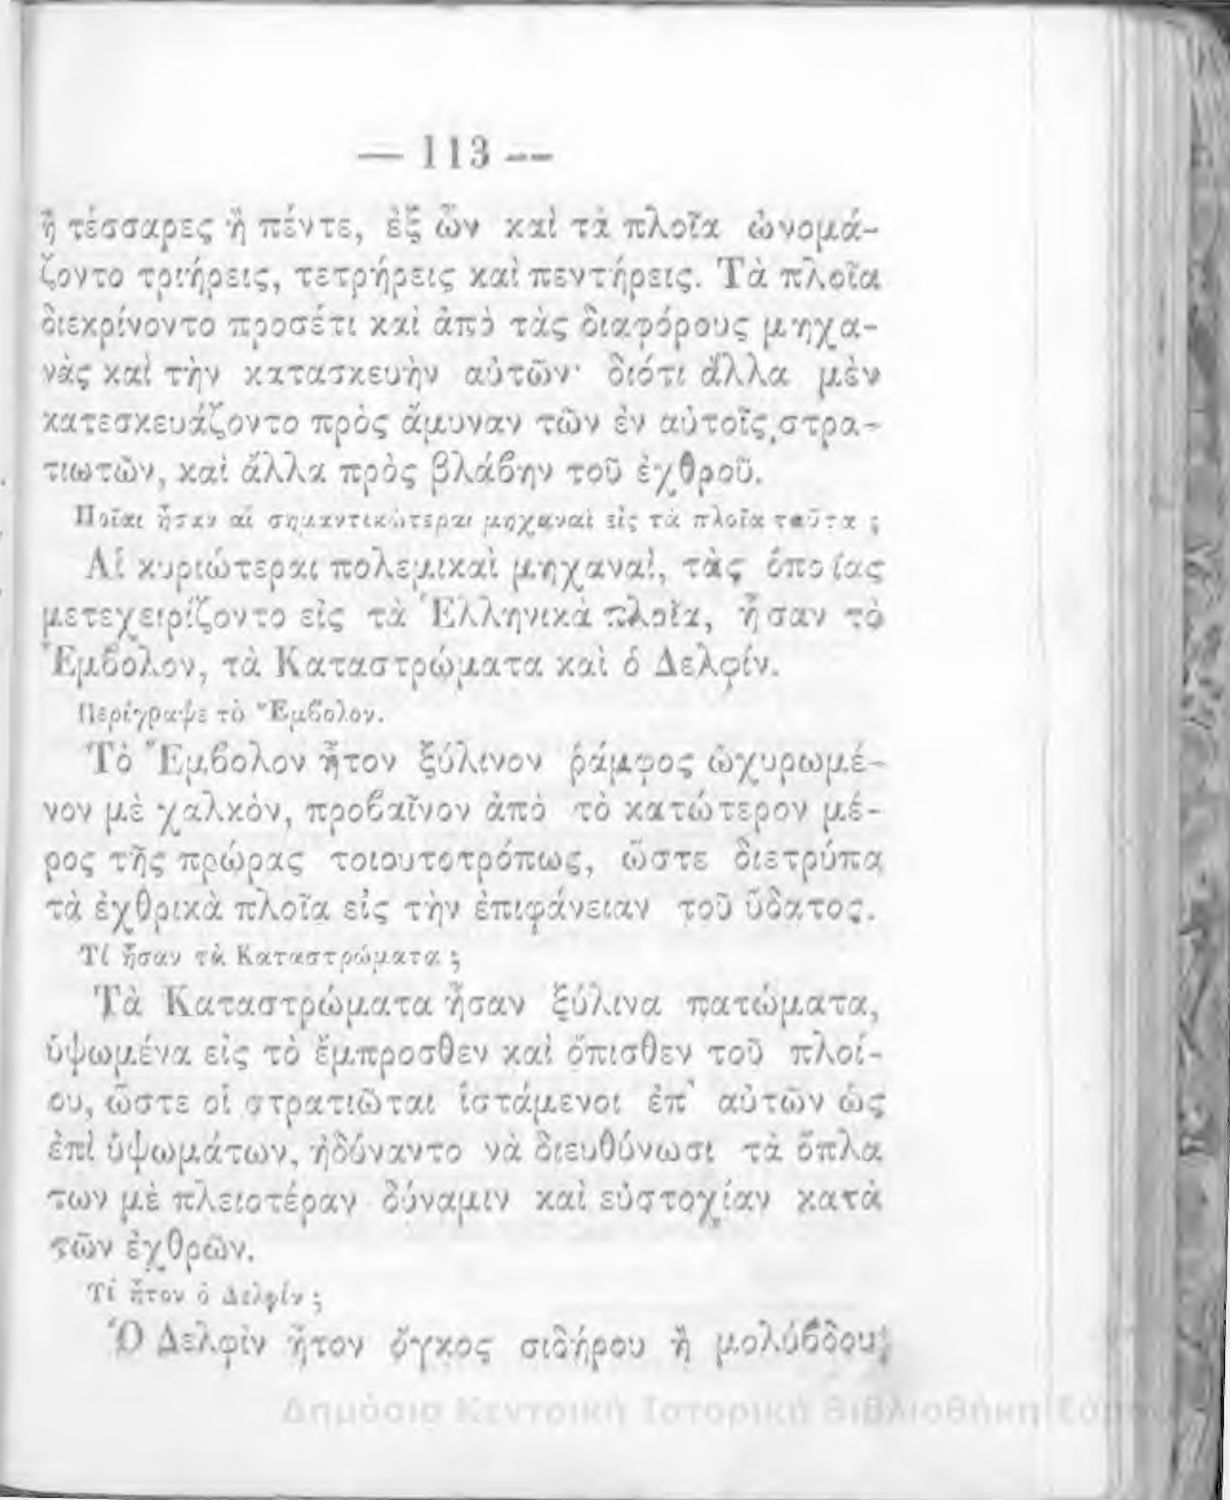 — 113 —
ἢ τέσσαρες ἢ πέντε, ἐξ ὧν καὶ τὰ πλοῖα ὠνομά-
ζοντο τριήρεις, τετρήρεις καὶ πεντήρεις. Τὰ πλοῖα
διεκρίνοντο προσέτι καὶ ἀπὸ τὰς διαφόρους μηχα-
νὰς καὶ τὴν κατασκευὴν αὐτῶν· διότι ἄλλα μὲν
κατεσκευάζοντο πρὸς ἄμυναν τῶν ἐν αὐτοῖς στρα-
τιωτῶν, καὶ ἄλλα πρὸς βλάϐην τοῦ ἐχθροῦ.
Ποῖαι ἦσαν αἱ σημαντικώτεραι μηχαναὶ εἰς τὰ πλοῖα ταῦτα ;
Αἱ κυριώτεραι πολεμικαὶ μηχαναὶ, τὰς ὁποίας
μετεχειρίζοντο εἰς τὰ Ἑλληνικὰ πλοῖα, ἦσαν τὸ
Ἔμϐολον, τὰ Καταστρώματα καὶ ὁ Δελφίν.
Περίγραψε τὸ Ἔμϐολον.
Τὸ Ἔμϐολον ἦτον ξύλινον ῥάμφος ὠχυρωμέ-
νον μὲ χαλκὸν, προϐαῖνον ἀπὸ τὸ κατώτερον μέ-
ρος τῆς πρώρας τοιουτοτρόπως, ὥστε διετρύπα
τὰ ἐχθρικὰ πλοῖα εἰς τὴν ἐπιφάνειαν τοῦ ὕδατος.
Τί ἦσαν τὰ Καταστρώματα ;
Τὰ Καταστρώματα ἦσαν ξύλινα πατώματα,
ὑψωμένα εἰς τὸ ἔμπροσθεν καὶ ὄπισθεν τοῦ πλοί-
ου, ὥστε οἱ στρατιῶται ἱστάμενοι ἐπ' αὐτῶν ὡς
ἐπὶ ὑψωμάτων, ἠδύναντο νὰ διευθύνωσι τὰ ὅπλα
των μὲ πλειοτέραν δύναμιν καὶ εὐστοχίαν κατὰ
τῶν ἐχθρῶν.
Τί ἦτον ὁ Δελφίν ;
Ὁ Δελφὶν ἦτον ὄγκος σιδήρου ἢ μολύϐδου,
Δημόσια Κεντρική Ιστορική Βιβλιοθήκη